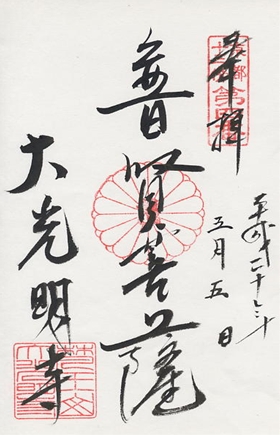 奉拝
平成二十三年
五月五日
普賢菩薩
大光明寺